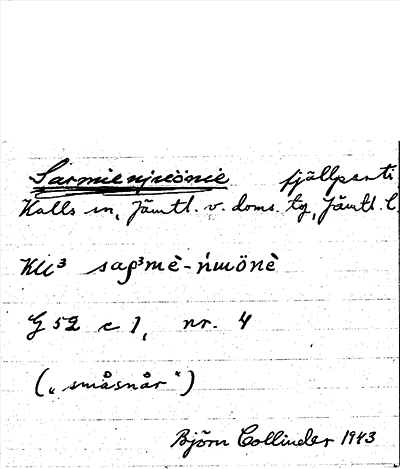 Sarmienjueönie fjällparti
Kalls sn, Jämtl. v. doms. tg, Jämtl. l.
KU³ saƍ³mè-ńuönè
G 52 c 1, nr. 4
("småsnår")
Björn Collinder 1943